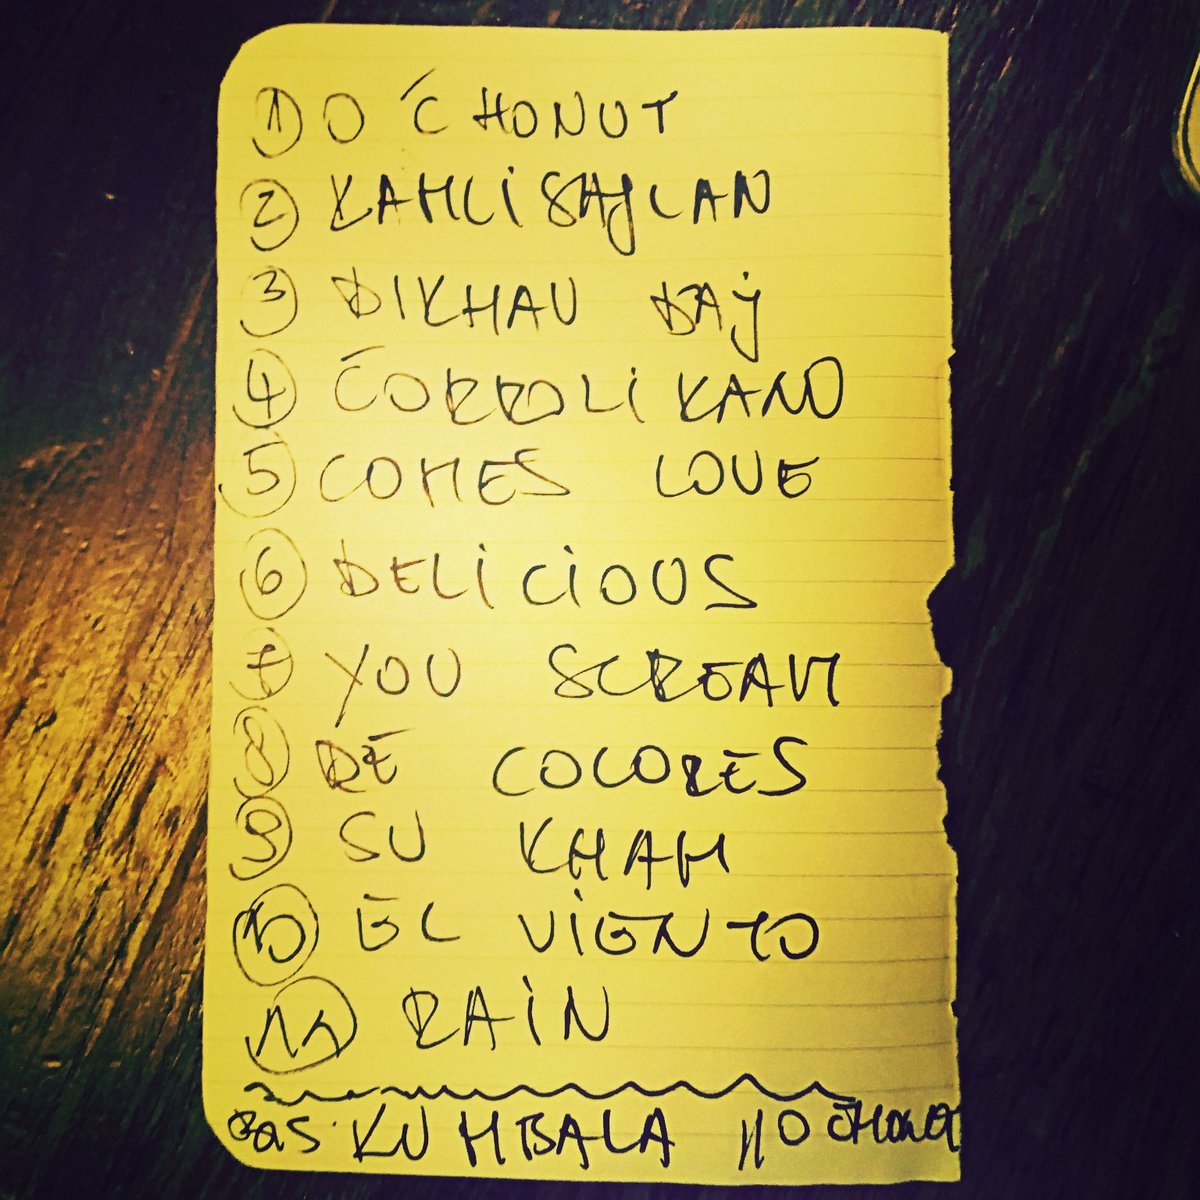 ① O ČHONUT
② KAMLISAJLAN
③ DIKHAV DAJ
④ ČORROLI KANO
⑤ COMES LOVE
⑥ DELICIOUS
⑦ YOU SCREAM
⑧ DE COLORES
⑨ SU KHAM
⑩ EL VIENTO
⑪ RAIN
BAS KUMBALA O ČHONO